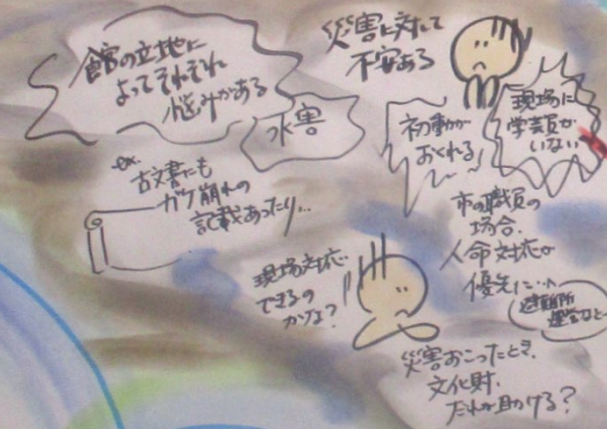 館の立地に
よってそれぞれ
悩みがある
水害
ex.
古文書にも
ガケ崩れの
記載あったり…
災害に対して
不安ある
初動が
おくれる!
現場に
学芸員が
いない
市の職員の
場合、
人命対応が
優先に…
避難所
運営など
現場対応
できるの
かな?
災害おこったとき、
文化財、
だれが助ける?